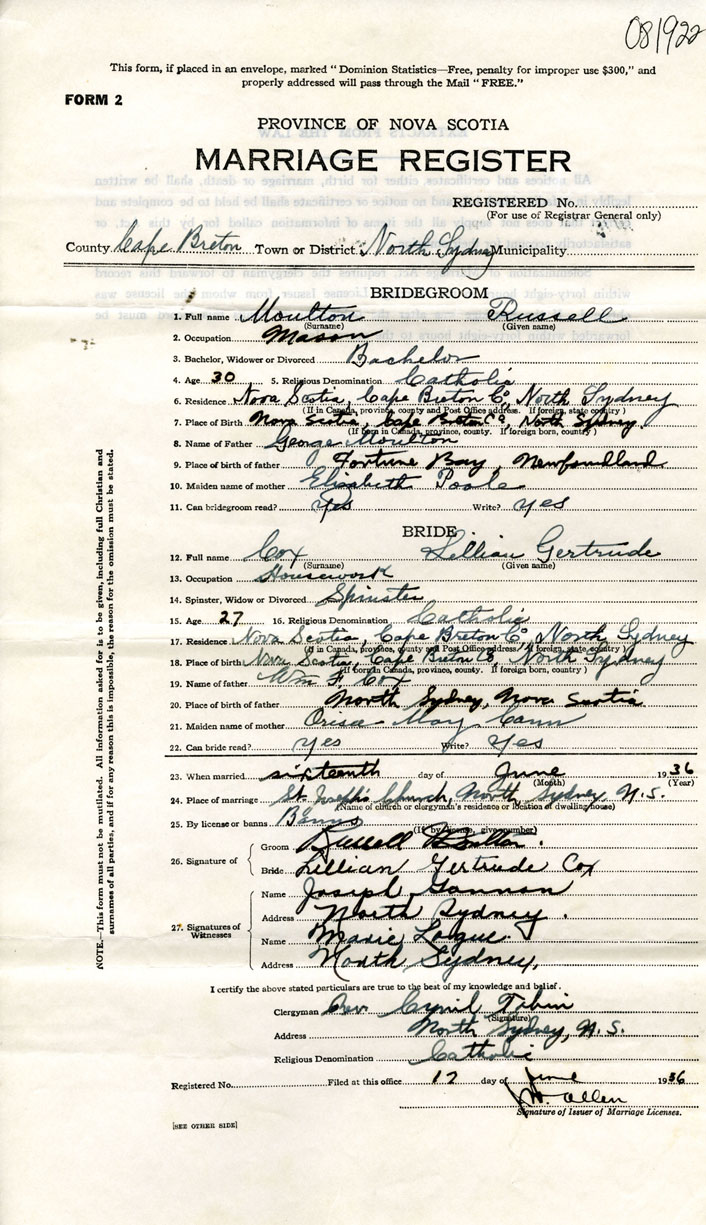 081922
This form, if placed in an envelope, marked "Dominion Statistics—Free, penalty for improper use $300," and
properly addressed will pass through the Mail "FREE."
FORM 2
PROVINCE OF NOVA SCOTIA
MARRIAGE REGISTER
REGISTERED No.
(For use of Registrar General only)
County Cape Breton Town or District North Sydney Municipality
BRIDEGROOM
1. Full name Moulton Russell
(Surname) (Given name)
2. Occupation Mason
3. Bachelor, Widower or Divorced Bachelor
4. Age 30 5. Religious Denomination Catholic
6. Residence Nova Scotia, Cape Breton Co, North Sydney
(If in Canada, province, county and Post Office address. If foreign, state country)
7. Place of Birth Nova Scotia, Cape Breton Co, North Sydney
(If born in Canada, province, county. If foreign born, country)
8. Name of Father George Moulton
9. Place of birth of father Fortune Bay, Newfoundland
10. Maiden name of mother Elizabeth Poole
11. Can bridegroom read? yes Write? yes
BRIDE
12. Full name Cox Lillian Gertrude
(Surname) (Given name)
13. Occupation Housework
14. Spinster, Widow or Divorced Spinster
15. Age 27 16. Religious Denomination Catholic
17. Residence Nova Scotia, Cape Breton Co, North Sydney
(If in Canada, province, county and Post Office address. If foreign, state country)
18. Place of birth Nova Scotia, Cape Breton Co, North Sydney
(If born in Canada, province, county. If foreign born, country)
19. Name of father Wm F. Cox
20. Place of birth of father North Sydney, Nova Scotia
21. Maiden name of mother May Cann
22. Can bride read? yes Write? Yes
23. When married sixteenth day of June 1936
(Month) (Year)
24. Place of marriage St. Joseph's Church, North Sydney, N.S.
(Name of church or clergymen's residence or location of dwelling house)
25. By license or banns Banns
(If by license, give number)
26. Signature of
Groom Russell Moulton.
Bride Lillian Gertrude Cox
27. Signatures of Witnesses
Name Joseph Gannon
Address North Sydney.
Name Marie Logue
Address North Sydney,
I certify the above stated particulars are true to the best of my knowledge and belief.
Clergyman Rev. Cyril
(Signature)
Address North Sydney, N.S.
Religious Denomination Catholic
Registered No. Filed at this office 17 day of June 1936
Allen
Signature of Issuer of Marriage Licenses.
[SEE OTHER SIDE]
NOTE.—This form must not be mutilated. All information asked for is to be given, including full Christian and
surnames of all parties, and if for any reason this is impossible, the reason for the omission must be stated.